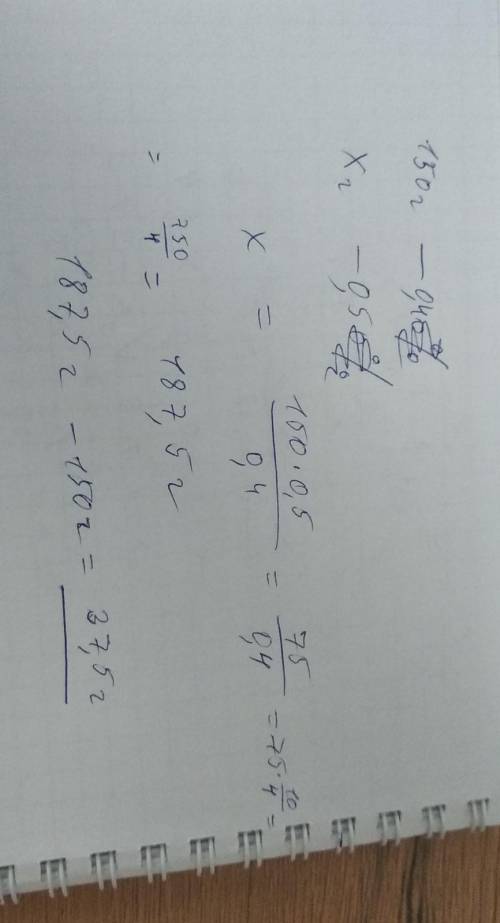 150г — 0,4
Xг — 0,5
X = 150·0,5/0,4 = 75/0,4 = 75·10/4 =
= 750/4 = 187,5г
187,5г - 150г = 37,5г